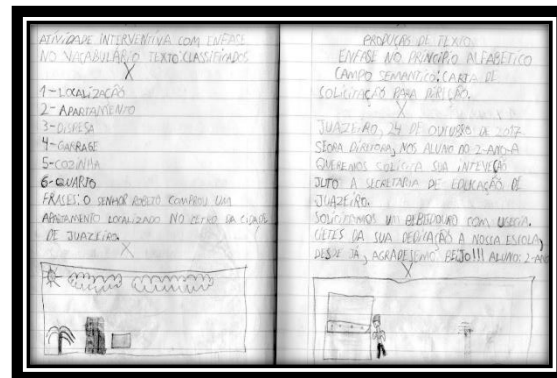 ATIVIDADE INTERVENTIVA COM ENFASE
NO VACABULÁRIO TEXTO:CLASSIFICADOS
X
1-LOCALIZAÇÃO
2-APARTAMENTO
3-DISPESA
4-GARRAGE
5-COZINHA
6-QUARTO
FRASES: O SENHOR ROBETO COMPROU UM
APARTAMENTO LOCALIZADO NO DA CIDADE
DE JUAZEIRO.
X
PRODUÇÃO DE TEXTO
ENFASE NO PRINCÍPIO ALFABÉTICO
CAMPO SEMANTICO:CARTA DE
SOLICITAÇÃO PARA
X
JUAZEIRO, 24 DE DE 2017
DIRETORA, NOS ALUNO DO 2-ANO-A
QUEREMOS SOLICITA SUA
JUTO A SECRETARIA DE EDUCAÇÃO DE
JUAZEIRO.
SOLICITAMOS UM COM
DA SUA DEDICAÇÃO A NOSSA ESCOLA,
DESDE JÁ, AGRADESEMO. BEIJO!!! ALUNO: 2-ANO
X